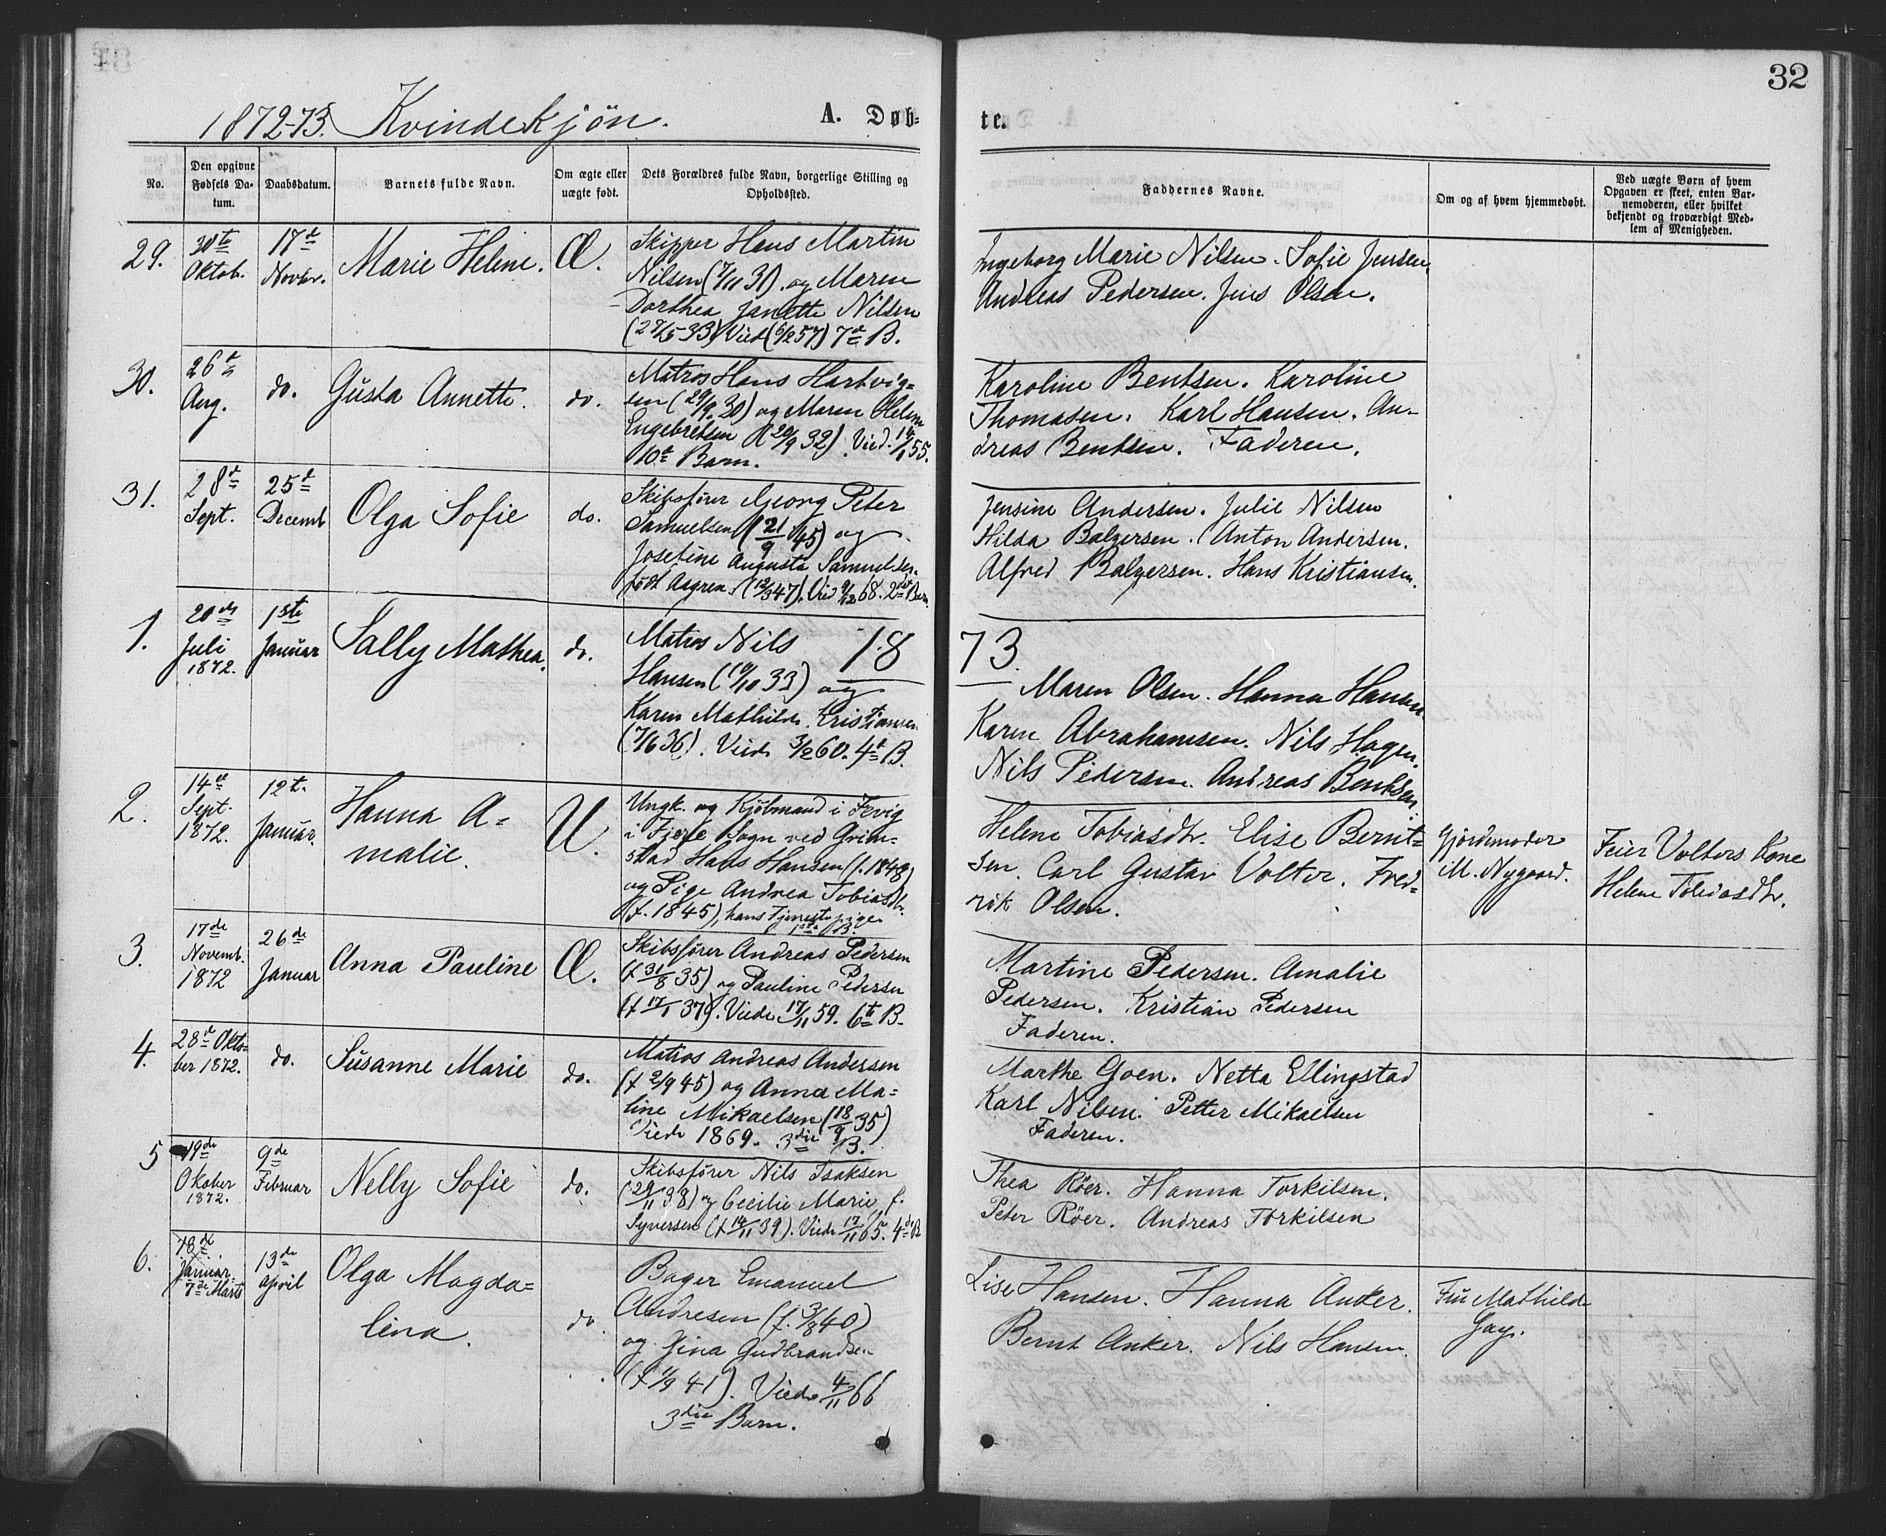 32
1872-73. Kvindekjön.
A. Døb-
te.
No.
Den opgivne Fødsels Da-tum.
Daabsdatum.
Barnets fulde Navn.
Om ægte eller uægte født.
Dets Forældres fulde Navn, borgerlige Stilling og Opholdssted.
Faddernes Navne.
Om og af hvem hjemmedøbt.
Ved uægte Børn af hvem Opgaven er skeet, enten Bar-nemoderen, eller hvilket bekjendt og troværdigt Med-lem af Menigheden.
29.
30te Oktob.
17de Novbr.
Marie Helene.
Æ.
Skipper Hans Martin
Nilsen (7/11 31). og Maren
Dorthea Janette Nilsen
(29/5 33) Viede (6/2 57) 7de B.
Ingeborg Marie Nilsen. Sofie Jensen,
Andreas Pedersen. Jens Olsen.
30.
26de Aug.
do.
Gusta Annette.
do.
Matros Hans Hartvig-
sen (29/9 30) og Maren Helene
Engebretsen (20/9 32). Vied. 14/1 55.
10de Barn.
Karoline Bentsen. Karoline
Thomasen. Karl Hansen. An-
dreas Bentsen. Faderen.
31.
28de Sept.
25de Decemb
Olga Sofie
do.
Skibsfører Georg Peter
Samuelsen (21/9 45) og
Josefine Augusta Samuelsen
født Aagren. (12/3 47). Vied 9/12 68. 2det Barn.
Jensine Andersen. Julie Nilsen
Hilda Balgersen. Anton Andersen.
Alfred Balgersen. Hans Kristiansen.
1873.
1.
20de Juli 1872.
1ste Januar
Sally Mathea.
do.
Matros Nils
Hansen (10/10 33) og
Karen Mathilde Kristiansen
(7/6 36). Viede 3/2 60. 4de B.
Maren Olsen. Hanna Hansen
Karen Abrahamsen. Nils Hagen.
Nils Pedersen. Andreas Bentsen
2.
14de Sept. 1872.
12te Januar.
Hanna A-
malie.
U.
Ungk. og Kjøbmand i Fevig
i Fjære Sogn ved Grim-
stad Hans Hansen (f. 1848)
og Pige Andrea Tobiasdtr.
(f. 1845), hans Tjenestepige
1ste B.
Helene Tobiasdtr. Elise Bernt-
sen. Carl Gustav Volter. Fred-
rik Olsen.
Gjordemoder
M. Nygaard.
Feier Volters Kone
Helene Tobiasdtr.
3.
17de Novemb. 1872
26de Januar
Anna Pauline
Æ.
Skibsfører Andreas Pedersen
(f 31/8 35) og Pauline Pedersen
(f 17/1 37). Viede 17/11 59. 6te B.
Martine Pedersen. Amalie
Pedersen. Kristian Pedersen
Faderen.
4.
28de Okto-
ber 1872.
do.
Susanne Marie
do.
Matros Andreas Andersen
(f 2/9 45) og Anna Ma-
line Mikaelsen (18/9 35)
Viede 1869. 3die B.
Marthe Goen. Netta Ellingstad
Karl Nilsen. Petter Mikaelsen
Faderen.
5
19de Oktober 1872.
9de Februar
Nelly Sofie
do.
Skibsfører Nils Isaksen
(29/11 38) og Cecilie Marie, f.
Syversen (f 14/11 39). Viede 17/11 65. 4de B
Thea Röer. Hanna Torkilsen.
Peter Röer. Andreas Torkilsen
6.
18de Januar.
7de Marts
13de April
Olga Magda-
lena.
do.
Bager Emanuel
Andresen (f. 3/8 40)
og Jina Gudbrandsen
(f 1/9 41). Viede 4/11 66
3die Barn.
Lise Hansen. Hanna Anker.
Bernt Anker. Nils Hansen.
Fru Mathilde
Gay.